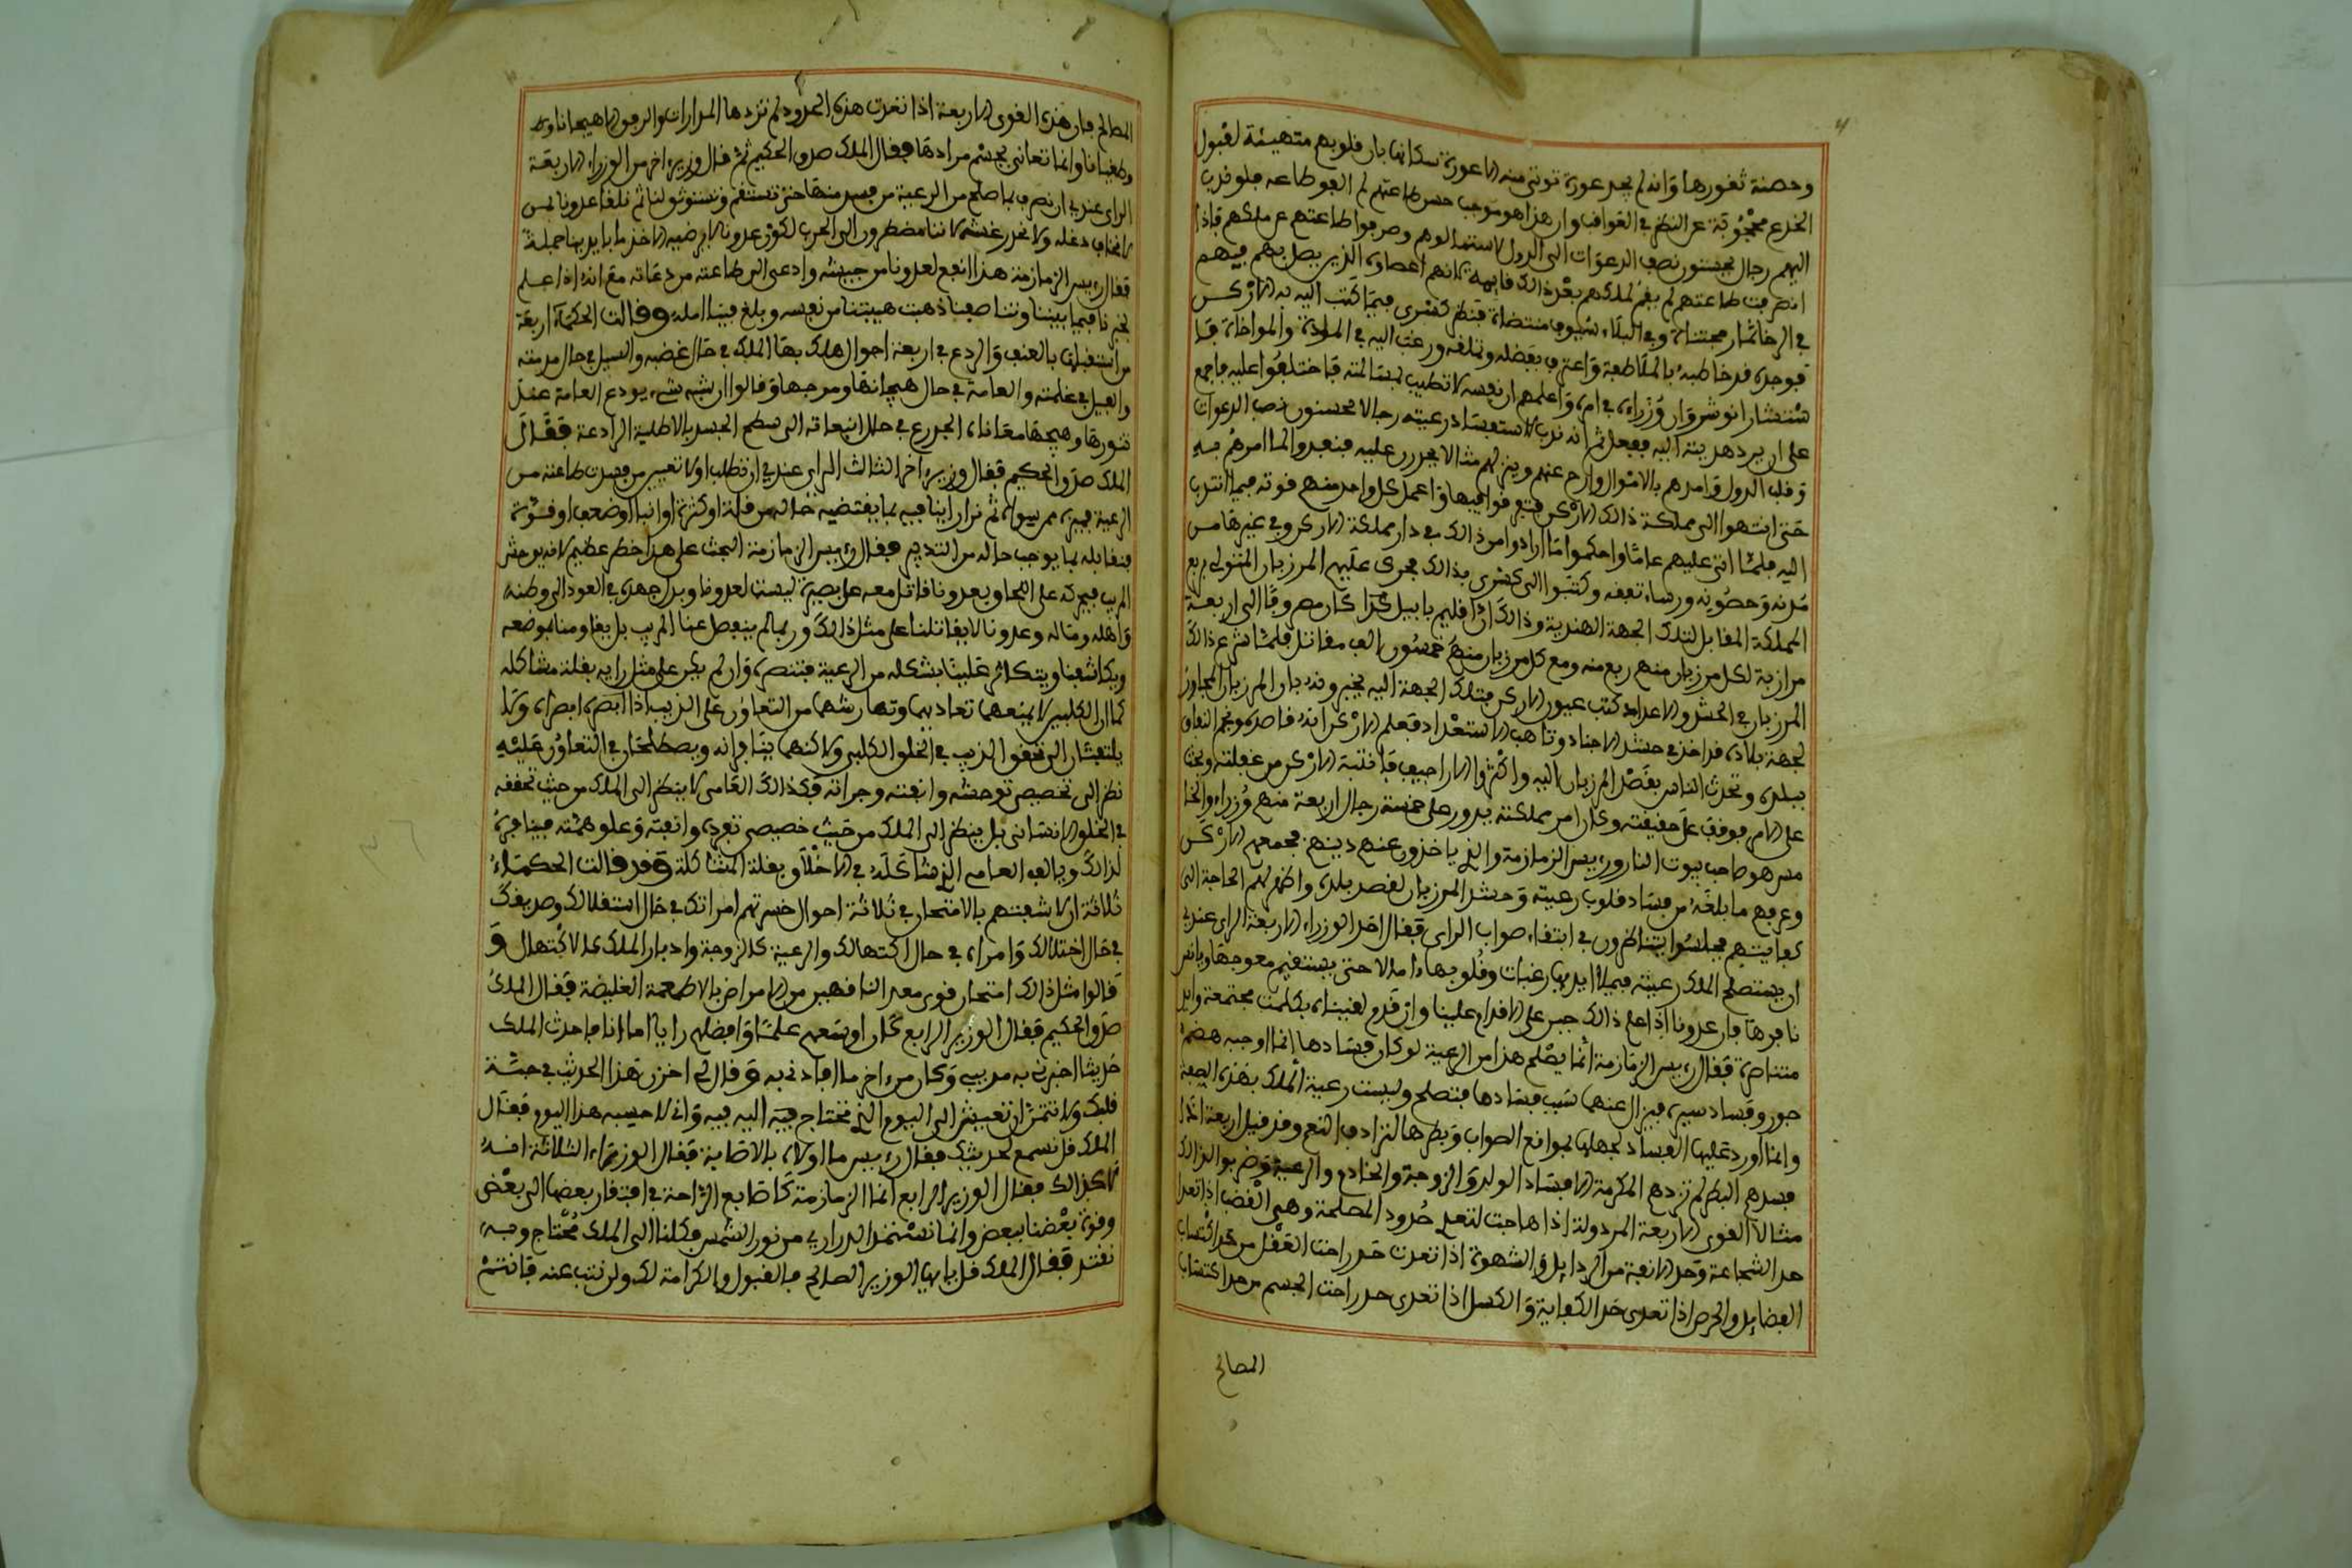 وحصنة ثغورها وانه لم يجد عورة توتى منه الا عورة سكانها بان قلوبهم متهيئة لقبول
الخدع محجوبة عن النظر في العواقب وان هذا هو موجب حسن طاعتهم لم الفو طاعه فلو ندب
اليهم رجال يحسنون نصب الدعوات الى الدول لاستمالوهم وصرفوا طاعتهم عن ملكهم فاذا
انصرفت طاعتهم لم يقم لملكهم بعد ذالك قايمة لانهم اعضاوه الذين يصل بهم فيهم
في الرخا ثمار مجتناة وفي البلاء سيوف منتضاة فنظر كسرى فيما كتب اليه به الاركن
فوجده قد خاطبه بالملاطفة واعترف بفضله وتملقه ورغب اليه في المودة والمواخاة فا
ستشار انوشروان وزراءه في امره واعلمهم ان نفسه لا تطيب لمسالمته فاختلفوا عليه فاجمع
على ان يرد هديته اليه ففعل ثم انه ندب لاستفساد رعيته رجالا يحسنون نصب الدعوات
وقلب الدول وامدهم بالاموال وازاح عنهم وبين لهم مثالا يجرون عليه فنفدوا لما امرهم به
حتى انتهوا الى مملكة ذالك الاركن فتفرقوا فيها واعمل كل واحد منهم قوته فيما انتدب
اليه فلما اتى عليهم عاما واحكموا ما ارادوا من ذالك في دار مملكة الاركن وفي غيرها من
مدنه وحصونه ورساتيقه وكتبوا الى كسرى بذالك فجرى عليهم المرزبان المتولى بربع
المملكة المقابل لتلك الجهة الهندية وذالك ان اقليم بابل كان مصروفا الى اربعة
مرازبة لكل مرزبان منهم ربع منه ومع كل مرزبان منهم خمسون الف مقاتل فلما شرع ذالك
المرزبان في الحشد والاعداد كتب عيون الاركن بتلك الجهة اليه يخبرونه بان المرزبان المجاوز
لجهة بلاده قد اخذ في حشد الاجناد وتاهب الاستعداد فعلم الاركن انه قاصده ونجم النفاق
ببلده وتحدث الناس بقصد المرزبان اليه واكثروا الاراجيف فانتبه الاركن من غفلته وبحث
على الامر فوقف على حقيقته وكان امر مملكته يدور على خمسة رجال اربعة منهم وزراء والخا
مس هو صاحب بيوت النار وريس الزمازمة والذي ياخذون عنهم دينهم فجمعهم الاركن
وعرفهم ما بلغه من فساد قلوب رعيته وحشد المرزبان لقصد بلده واظهر لهم الحاجة الى
كفايتهم فجلسوا يتناظرون في ابتغاء صواب الراى فقال احد الوزراء الاربعة الراى عندي
ان يستصلح الملك رعيته فيملا ايديها رغبات وقلوبها امالا حتى يستقيم معوجها ويانس
نافرها فان عدونا اذا علم ذالك جبن على الاقدام علينا وان قدم لقيناه بكلمة مجتمعة وايد
متناصرة فقال ريس الزمازمة انما يصلح هذا من الرعية لو كان فسادها انما اوجبه هضم
جور وفساد سيرة فيزال عنهما سبب فسادها فتصلح وليست رعية الملك بهذه الصفة
وانما اورد عليها الفساد لجهلها بمواقع الصواب وبطرها لترادف النعم وقد قيل اربعة اذا
فسدهم البطر لم تزدهم المكرمة الا فسادا الولد والزوجة والخادم والرعية وضربوا لذالك
مثالا القوى الاربعة المردولة اذا هاجت لتعد حدود المصلحة وهي الغضب اذا تعدا
حد الشجاعة وحد الانفة من الرذايل والشهوة اذا تعدت حد راحت العقل من كد اكتساب
الفضايل والحرص اذا تعدى حد الكفاية والكسل اذا تعدى حد راحت الجسم من حد اكتساب
المصالح
المصالح فان هذه القوى الاربعة اذا تعدت هذه الحدود لم تزدها المدارات والرفق الا هيجانا و
وطغيانا وانما تعانى بحسم مرادها فقال الملك صدق الحكيم ثم قال وزير اخر من الوزراء الاربعة
الراى عندي ان نضرب بما صلح من الرعية من فسد منها حتى تستقم وتستوثق لنا ثم نلقا عدونا بمن
لا نخاف دغله ولا نحدر غشه لاننا مضطرون الى الحرب لكون عدونا لا يرضيه الا اخذ ما بايدينا جملة
فقال ريس الزمازمة هذا انفع لعدونا من جيشه وادعى الى طاعته من دعاته مع انه اذا علم
تحزبنا فيما بيننا وتناصفنا ذهبت هيبتنا من نفسه وبلغ فينا امله وقالت الحكماء اربعة
من استقبلها بالعنف والردع في اربعة احوال هلك بها الملك في حال غضبه والسيل في حال
والفيل في غلمته والعامة في حال هيجانها ومرجها وقالوا ان شبه شيء بردع العامة عند
ثورها وهيجها معاناة الجدري في حال انبعاثه الى سطح الجسد بالاطلية الرادعة فقال
الملك صدق الحكيم فقال وزير اخر الثالث الراى عندي ان نطلب اولا تعيين من فسدت طاعته من
الرعية فميزه من سواه ثم ندار راينا فيه بما يقتضيه حاله من قلة او كثرة او وضعف او قوة
فنقابله بما يوجب حاله من التدبير فقال ريس الزمازمة البحث على هذا خطر عظيم لانه يوحش
المريب فيحركه على اللحاق بعدونا فاتل معه على بصيرة ليست لعدونا وبذل جهده في العود الى وطنه
واهله وماله وعدونا لا يقاتلنا على مثل ذالك وربما لم ينفصل عنا المريب بل يقاومنا بموضعه
ويكاشفنا ويتكاثر علينا بشكله من الرعية فتنصره وان لم يكن على مثل رايه بفلتة مشاكله
كما ان الكلبين لا يمنعهما تعاديهما وتهارشهما من التعاون على الذيب اذا ابصراه ولا
يلتفتان الى تحقق الذيب في الخلق الكلبي ولاكنهما ينافرانه ويصطلحان في التعاون عليه
نظرا لى تخصيص توحشه وانفته وجراته فكذالك العامي لا ينظر الى الملك من حيث تحققه
في الخلق الانساني بل ينظر الى الملك من حيث خصيص تفرده وانفته وعلو همته فينافره
لذالك ويالف العامي الذي شاكله في الاخلاق بفلتة المشاكلة وقد قالت الحكماء
ثلاثة ان كاشفتهم بالامتحان في ثلاثة احوال خسرتهم امراتك في حال استقلالك وصديقك
في حال اختلالك وامراه في حال اكتهالك والرعية كالزوجة وادبار الملك كالاكتهال و
قالوا مثل ذالك امتحان قوى معدة الناقهين من الامراض بالاطعمة الغليظة فقال الملك
صدق الحكيم فقال الوزير الرابع كان اوسعهم علما وافضلهم رايا اما انا فاحدث الملك
حديثا اخبرني به مودبي وكان من اخر ما افادني به وقال لي اخزن هذا الحديث في حبة
قلبك ولا تتمن ان تعيش الى اليوم الذي تحتاج فيه اليه فيه واني لاحسبه هذا اليوم فقال
الملك قل نسمع لحديثك فقال ريس ما اولاه بالاصابة فقال الوزراء الثلاثة انه
لاكذالك فقال الوزير الرابع انما الزمازمة كاصابع الراحة في افتقار بعضها الى بعض
وقوة بعضنا ببعض وانما نستمد الدراري من نور الشمس وكلنا الى الملك محتاج وبه
نقتد فقال الملك قل يايها الوزير الصالح فالقبول والكرامة لك ولن نتب عنه فانتم